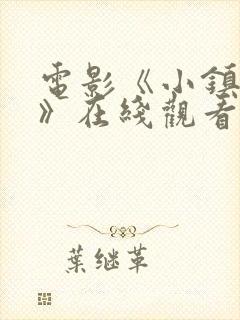 電影《小鎮
》在綫觀看
葉继革